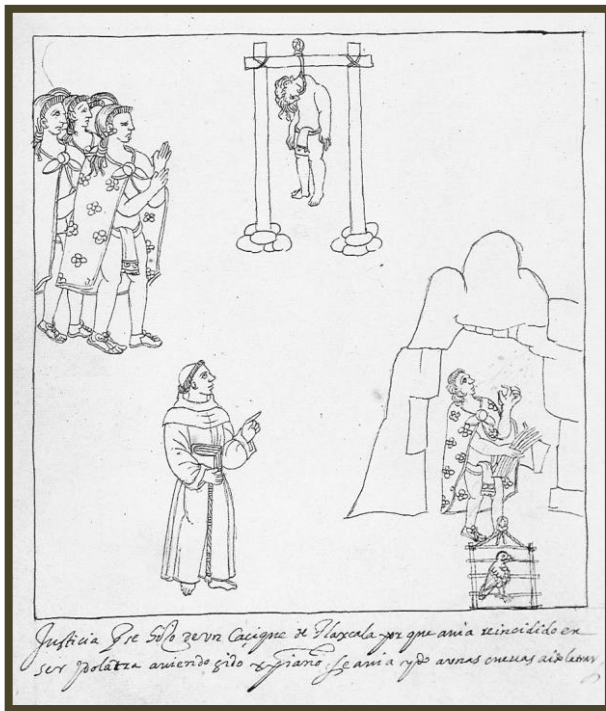 Justicia q̃ se hizo de vn Caçique de Tlaxcala por que auia reincidido en
ser ydolatra auiendo sido xp̃iano se auia ydo a vnas cueuas a idolatrar